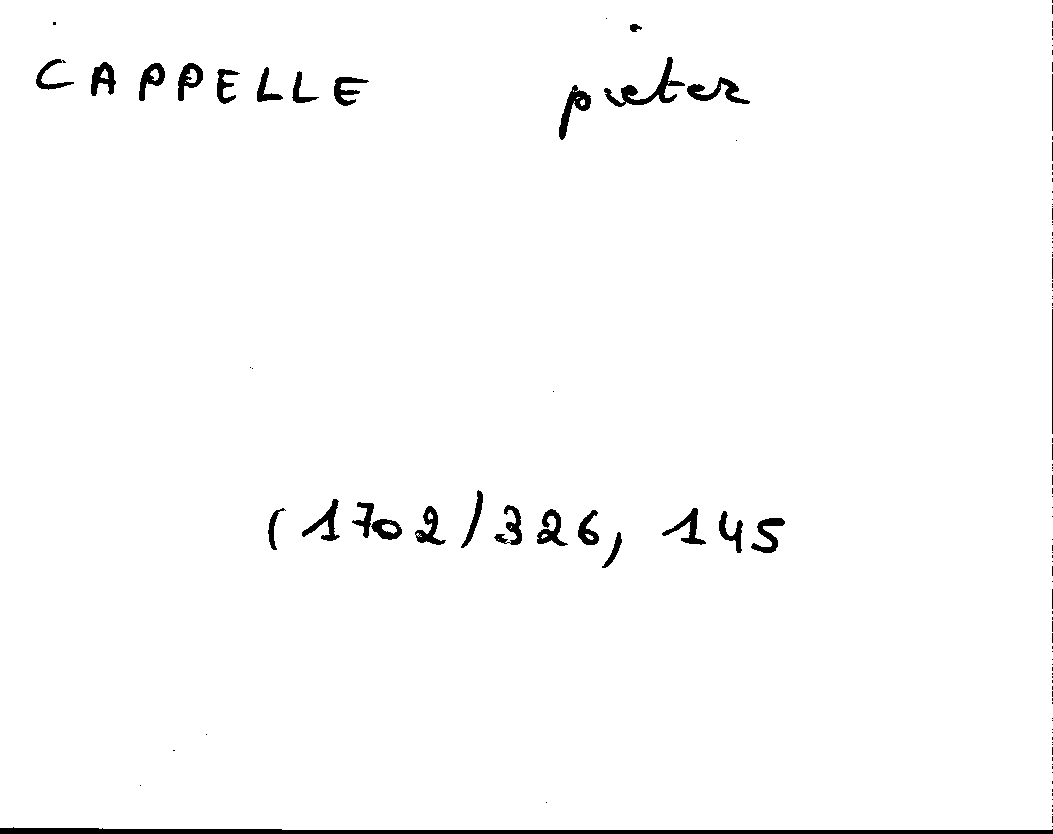 CAPPELLE pieter
(1702/326, 145